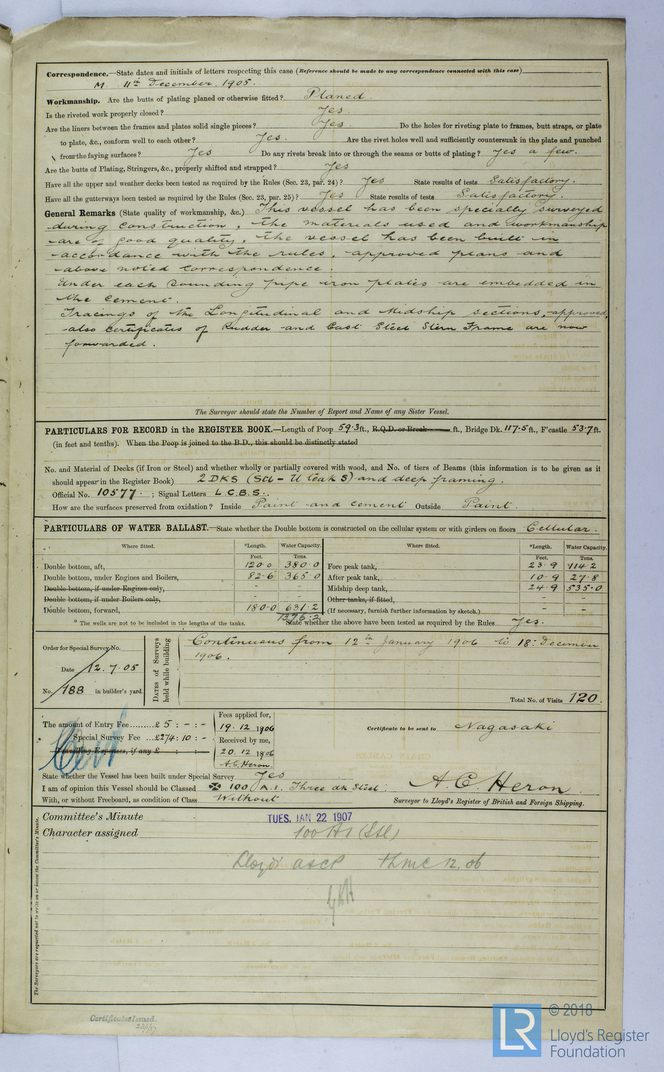 Correspondence.—State dates and initials of letters respecting this case (Reference should be made to any correspondence connected with this case)
M 11th December 1905.
Workmanship. Are the butts of plating planed or otherwise fitted? Planed.
Is the riveted work properly closed? Yes.
Are the liners between the frames and plates solid single pieces? Yes Do the holes for riveting plate to frames, butt straps, or plate
to plate, &c., conform well to each other? Yes. Are the rivet holes well and sufficiently countersunk in the plate and punched
from the faying surfaces? Yes Do any rivets break into or through the seams or butts of plating? Yes a few.
Are the butts of Plating, Stringers, &c., properly shifted and strapped? Yes
Have all the upper and weather decks been tested as required by the Rules (Sec. 23, par. 24)? Yes State results of tests Satisfactory.
Have all the gutterways been tested as required by the Rules (Sec. 23, par. 25)? Yes State results of tests Satisfactory.
General Remarks (State quality of workmanship, &c.) This vessel has been specially surveyed
during construction, the materials used and workmanship
are of good quality, the vessel has been built in
accordance with the rules, approved plans and
above noted correspondence.
Under each sounding pipe iron plates are embedded in
the cement.
Tracings of the Longitudinal and Midship sections, approved,
also Certificates of Rudder and Cast Steel Stern Frame are now
forwarded.
The Surveyor should state the Number of Report and Name of any Sister Vessel.
PARTICULARS FOR RECORD in the REGISTER BOOK.—Length of Poop 59.3 ft., R.Q.D. or Break ft., Bridge Dk. 117.5 ft., F'castle 53.7 ft.
(in feet and tenths). When the Poop is joined to the B.D., this should be distinctly stated
No. and Material of Decks (if Iron or Steel) and whether wholly or partially covered with wood, and No. of tiers of Beams (this information is to be given as it
should appear in the Register Book) 2 DKS (Stl - U teak S) and deep framing.
Official No. 10577. ; Signal Letters L.C.B.S.
How are the surfaces preserved from oxidation? Inside Paint and cement Outside Paint.
PARTICULARS OF WATER BALLAST.—State whether the Double bottom is constructed on the cellular system or with girders on floors Cellular.
Where fitted. *Length. Water Capacity. Where fitted. *Length. Water Capacity.
Feet. Tons. Feet. Tons.
Double bottom, aft, 120.0 380.0 Fore peak tank, 23.9 114.2
Double bottom, under Engines and Boilers, 82.6 365.0 After peak tank, 10.9 27.8
Double bottom, if under Engines only, - - Midship deep tank, 24.9 535.0
Double bottom, if under Boilers only, - - Other tanks, if fitted, - -
Double bottom, forward, 180.0 631.2 (If necessary, furnish further information by sketch.) - -
1376.2
* The wells are not to be included in the lengths of the tanks. State whether the above have been tested as required by the Rules Yes.
Order for Special Survey No.
Date 12.7.05
No. 188 in builder's yard.
DATES of Surveys held while building
Continuous from 12th January 1906 to 18th December
1906.
Total No. of Visits 120
The amount of Entry Fee £ 5 : - : -
Special Survey Fee £274 : 10 : -
Travelling Expenses, if any £ : :
Cert
Fees applied for,
19.12.1906
Received by me,
20.12.1906
A.C. Heron.
Certificate to be sent to Nagasaki
State whether the Vessel has been built under Special Survey Yes
I am of opinion this Vessel should be Classed ✠ 100 A.1. Three dk Steel.
With, or without Freeboard, as condition of Class Without
A. C. Heron.
Surveyor to Lloyd's Register of British and Foreign Shipping.
Committee's Minute TUES. JAN 22 1907
Character assigned 100 A1 (Stl)
Lloyd's A&CP + LMC 12.06
The Surveyors are requested not to write on or below the Committee's Minute.
Certificate Issued.
© 2018
LR
Lloyd's Register
Foundation